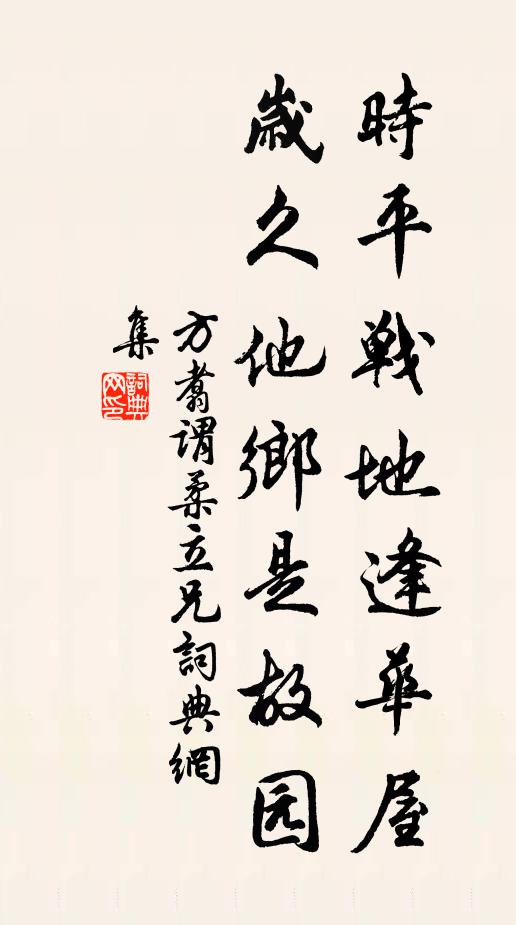 時平戦地逢華屋
歲久他鄉是故园
方翥謂柔立兄詞典網
集
詞典网印